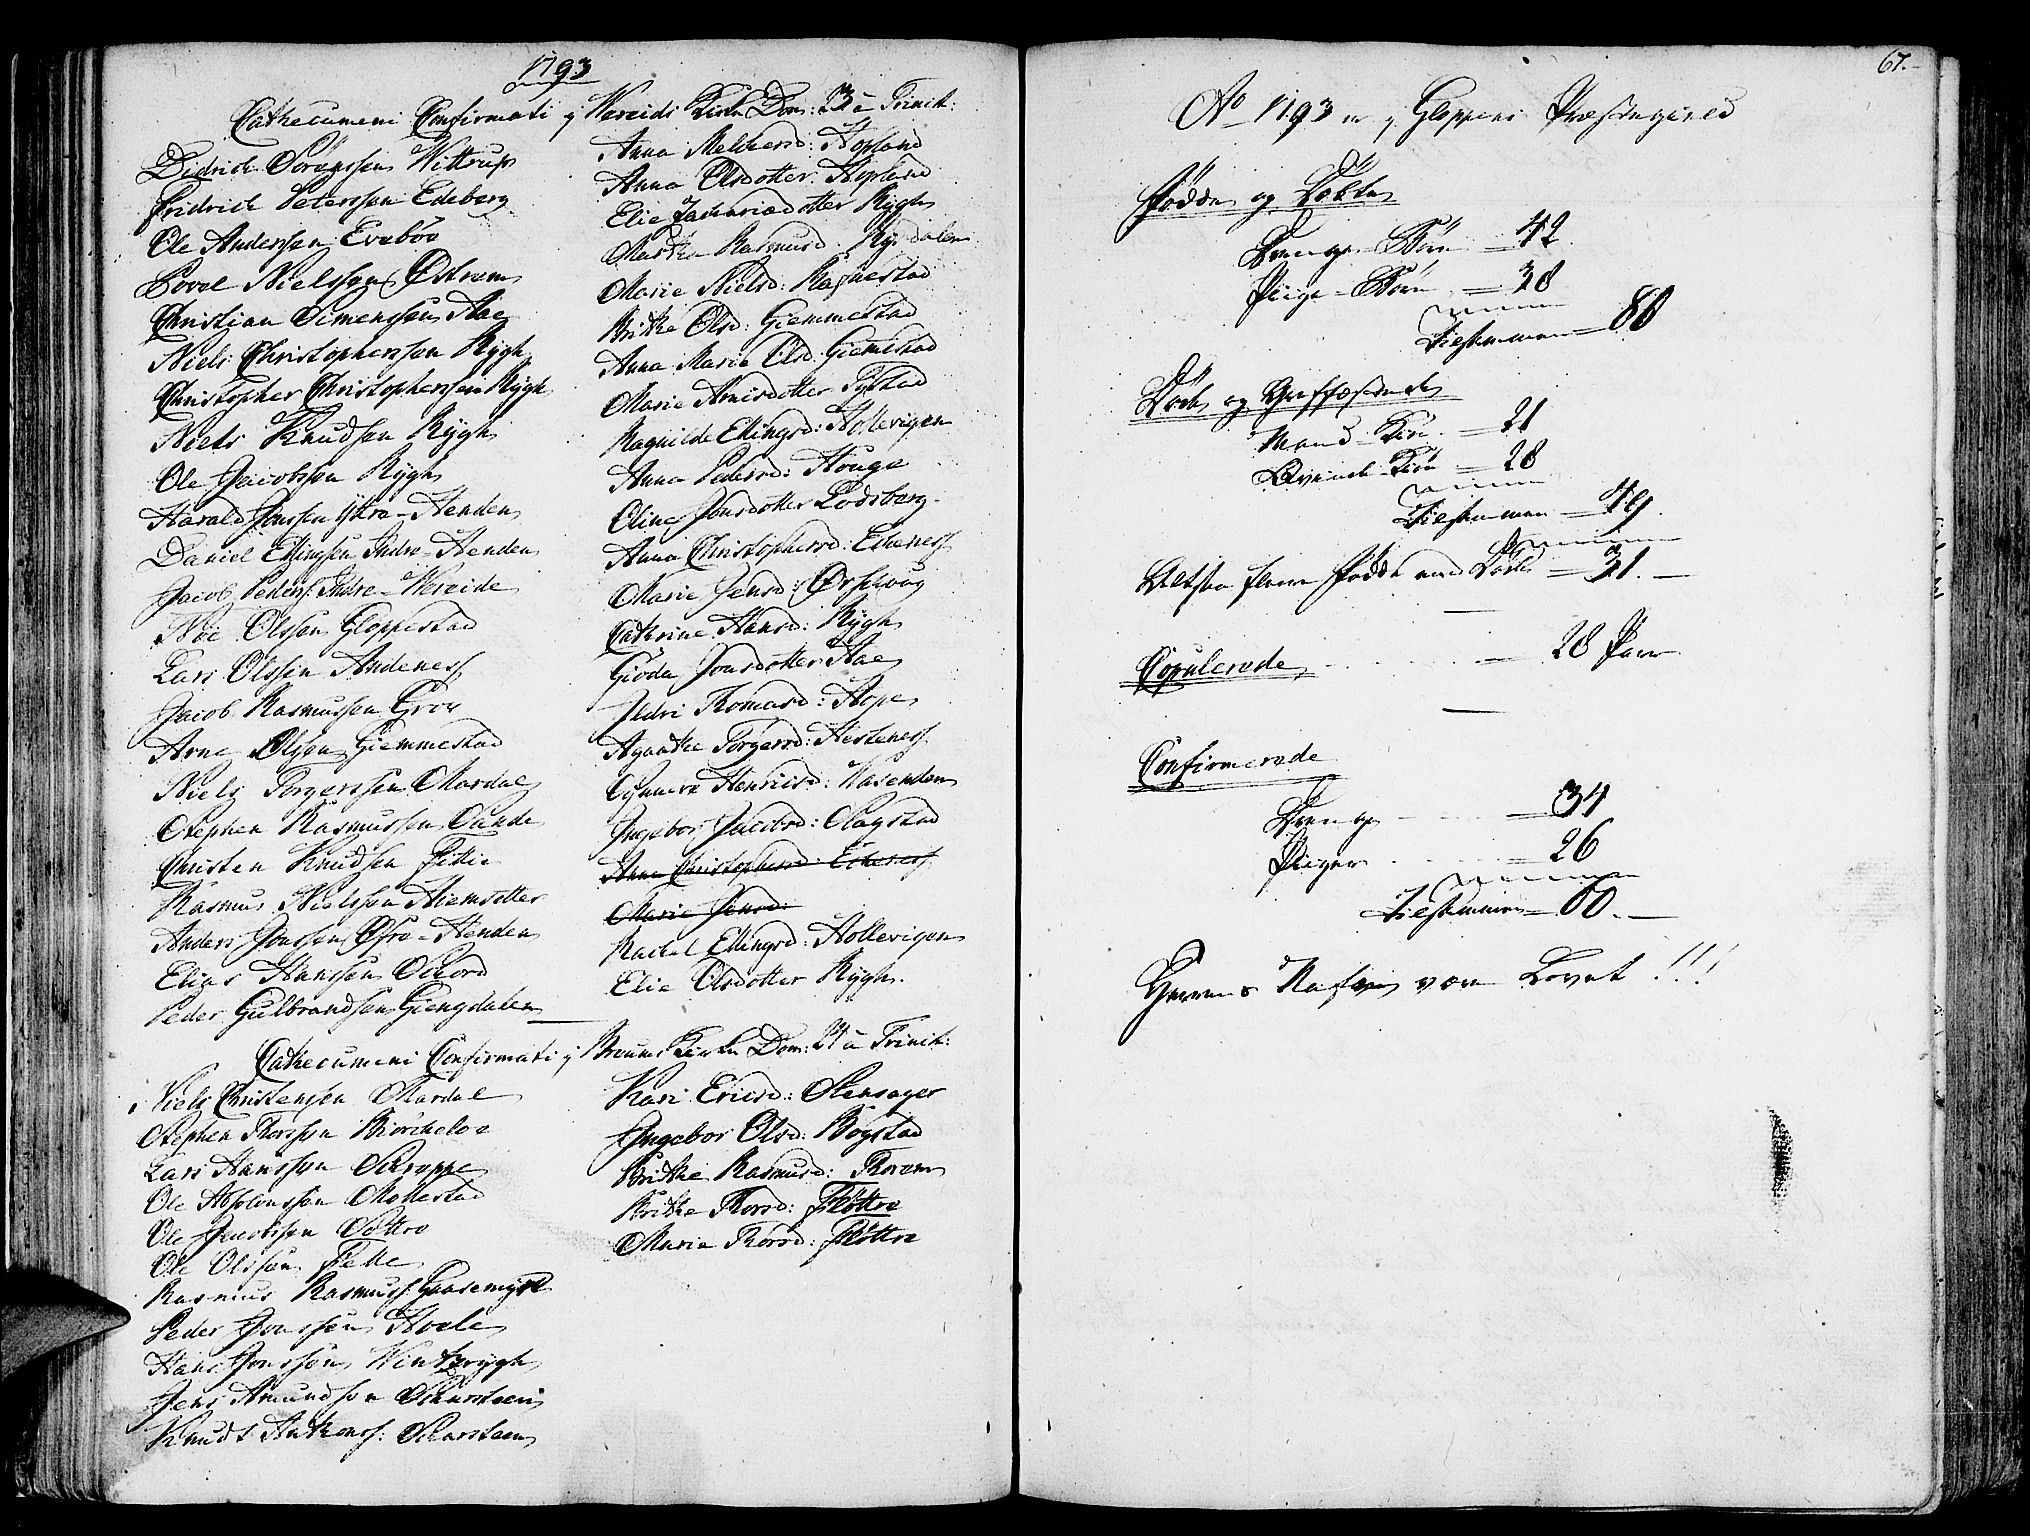 1793
Cathecumeni Confirmati j Wereids Kirke Dom: 23 a Trinit:
Didrich Sörenssen Wittrup
Fridrich Peterssen Edeberg
Ole Anderssen Evebøe
Povel Nielssøn Østrem
Christian Simenssen Aae
Niels Christopherssøn Rygh
Christopher Christopherssen Rygh
Niels Knudsøn Rygh
Ole Jacobssøn Rygh
Harald Jonssen Yttre-Henden
Daniel Ellingsen Indre-Henden
Jacob Peders: Indre-Wereide
Noe Olssøn Gloppestad
Lars Olssen Andeness
Jacob Rasmussen Grov
Arne Olssøn Giemmestad
Niels Torgerssen Mardal
Stephen Rasmussen Sande
Christen Knudsen Fittie
Rasmus Nielssøn Hiemsetter
Anders Jonssen Øfre-Henden
Elias Hanssen Skord
Peder Gulbrandsen Giengedalen
Anna Melchersd: Hopland
Anna Olsdotter Hopland
Elie Zachariædotter Rygh
Martha Rasmusd: Rysdalen
Marie Nielsd: Ragnestad
Brithe Olsd: Giemmestad
Anna Marie Olsd: Giemestad
Marie Arnisdotter Tystad
Ragnilde Ellingsd: Hollevigen
Anna Pedersd: Houge
Eline Jonsdotter Lodsberg
Anna Christophersd: Eikeness
Marie Jensd: Ørsevog
Cathrine Hansd: Rygh
Giøda Jonsdotter Aae
Ildri Thomasd: Hope
Agathe Torgersd: Hesteness
Synneve Henricsd: Wasenden
Ingebor Jacobsd: Slagstad
Anna Christophersd: Eikeness
Marie Jensd:
Rachel Ellingsd: Hollevigen
Elie Olsdotter Rygh.
Cathecumeni Confirmati j Breums Kirke Dom: 24 a Trinit:
Niels Christensen Mardal
Stephen Thorssøn Biørcheloe
Lars Hanssøn Skroppe
Ole Absolonssøn Mollestad
Ole Jacobssøn Søttre
Ole Olssøn Felle
Rasmus Rasmuss: Gaasemyr
Peder Jonssen Hoele
Hans Jonssøn Winterygh
Jens Amundsøn Skarsteen
Knudt Anthons: Skarsteen
Kari Ericsd: Stensager
Ingebor Olsd: Bogstad
Brithe Rasmusd: Thorem
Brithe Thorsd: Fløttre
Marie Thorsd: Fløttre
67.
Ao 1793 er j Gloppens Præstegield
Fødde og Døbte
Drenge-Börn = 42.
Piige-Börn = 38
Tilsammen = 80
Døde og Begravede
Mand-Kiön = 21
Qvinde-Kiön = 28
Tilsammen = 49.
Altsaa flere Fødde end Døde = 31.
Copulerede - - - 28 Par
Confirmerede
Drenge - - - = 34
Piiger - - - = 26
Tilsammen = 60.
Herrens Nafn være Lovet!!!